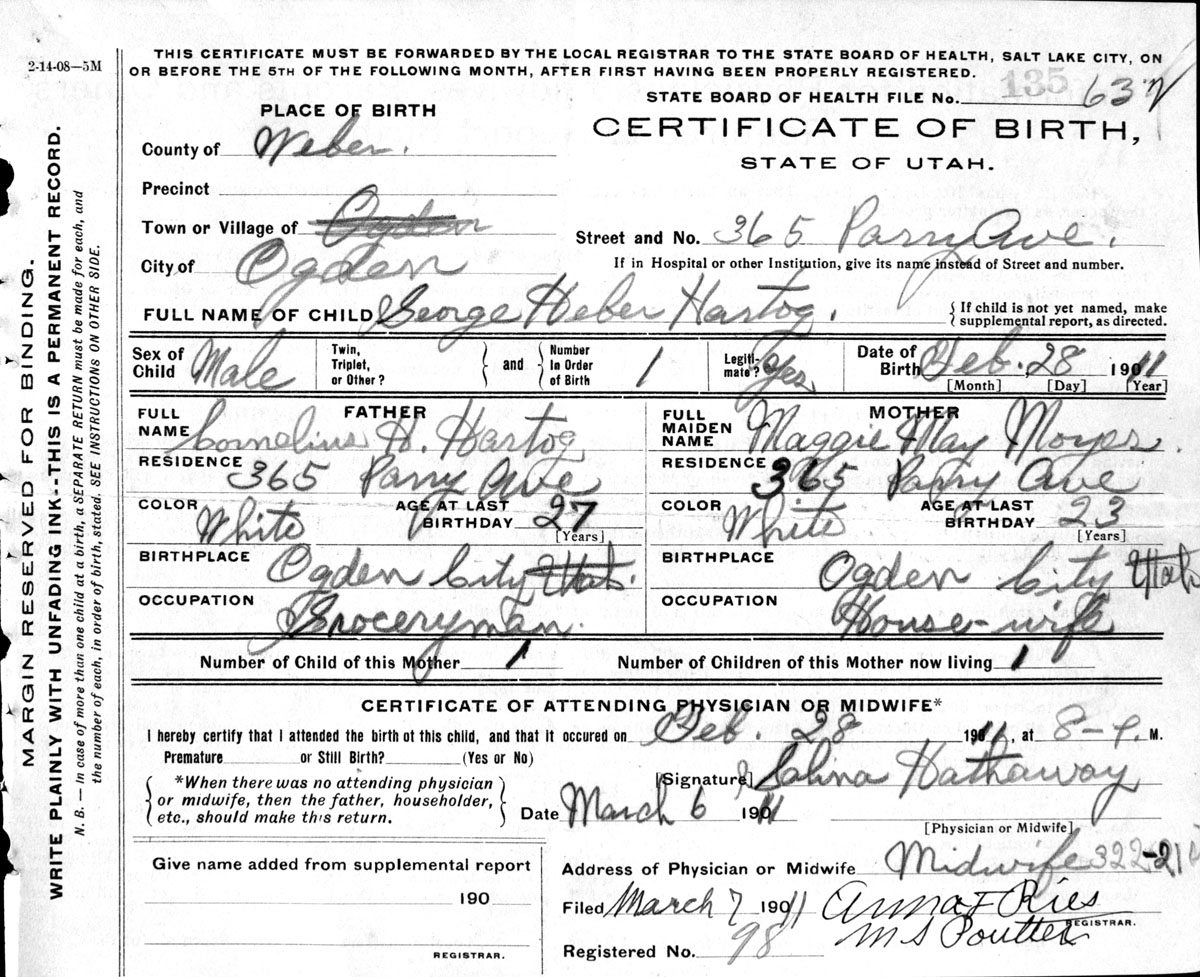 2-14-08—5M
THIS CERTIFICATE MUST BE FORWARDED BY THE LOCAL REGISTRAR TO THE STATE BOARD OF HEALTH, SALT LAKE CITY, ON
OR BEFORE THE 5TH OF THE FOLLOWING MONTH, AFTER FIRST HAVING BEEN PROPERLY REGISTERED.
STATE BOARD OF HEALTH FILE No. 135 63
PLACE OF BIRTH
CERTIFICATE OF BIRTH,
STATE OF UTAH.
County of Weber.
Precinct
Town or Village of Ogden
Street and No. 365 Parry Ave.
City of Ogden
If in Hospital or other Institution, give its name instead of Street and number.
FULL NAME OF CHILD George Heber Hartog. {If child is not yet named, make
supplemental report, as directed.
Sex of Child Male Twin, Triplet, or Other? } and { Number In Order of Birth 1 Legiti-mate? Yes Date of Birth Feb. 28 1911
[Month] [Day] [Year]
FATHER
FULL NAME Cornelius H. Hartog
RESIDENCE 365 Parry Ave
COLOR White AGE AT LAST BIRTHDAY 27
[Years]
BIRTHPLACE Ogden City Utah.
OCCUPATION Groceryman.
MOTHER
FULL MAIDEN NAME Maggie May Moyes.
RESIDENCE 365 Parry Ave
COLOR White AGE AT LAST BIRTHDAY 23
[Years]
BIRTHPLACE Ogden City Utah
OCCUPATION House-wife
Number of Child of this Mother 1 Number of Children of this Mother now living 1
CERTIFICATE OF ATTENDING PHYSICIAN OR MIDWIFE*
I hereby certify that I attended the birth of this child, and that it occured on Feb. 28 1911, at 8- M.
Premature or Still Birth? (Yes or No)
*When there was no attending physician
or midwife, then the father, householder,
etc., should make this return.
[Signature] Salina Hathaway
Date March 6 1911
[Physician or Midwife]
Give name added from supplemental report
190
REGISTRAR.
Address of Physician or Midwife Midwife 322-21
Filed March 7 1911 Anna F Ries
M S Poutter
REGISTRAR.
Registered No. 98
MARGIN RESERVED FOR BINDING.
WRITE PLAINLY WITH UNFADING INK--THIS IS A PERMANENT RECORD.
N. B. — In case of more than one child at a birth, a SEPARATE RETURN must be made for each, and
the number of each, in order of birth, stated. SEE INSTRUCTIONS ON OTHER SIDE.